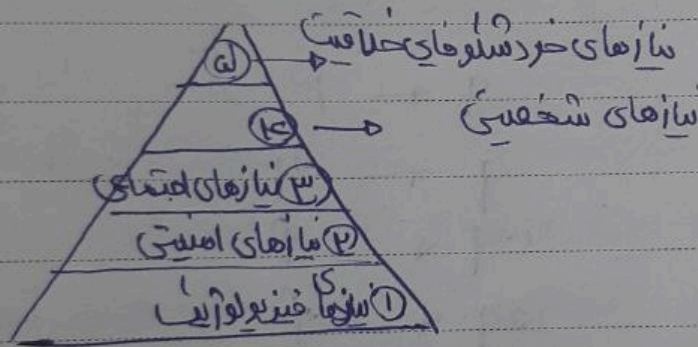 ۵ → نیازهای خودشکوفایی خلاقیت
۴ → نیازهای شخصیتی
۳ نیازهای اجتماعی
۲ نیازهای امنیتی
۱ نیازهای فیزیولوژیک